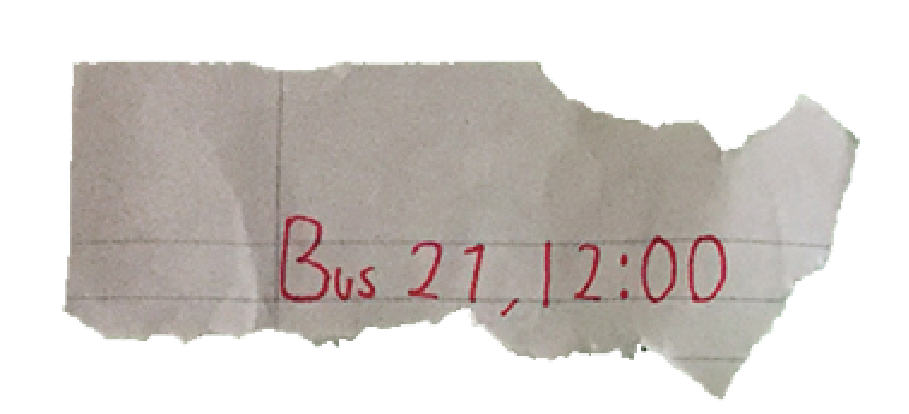 Bus 21, 12:00